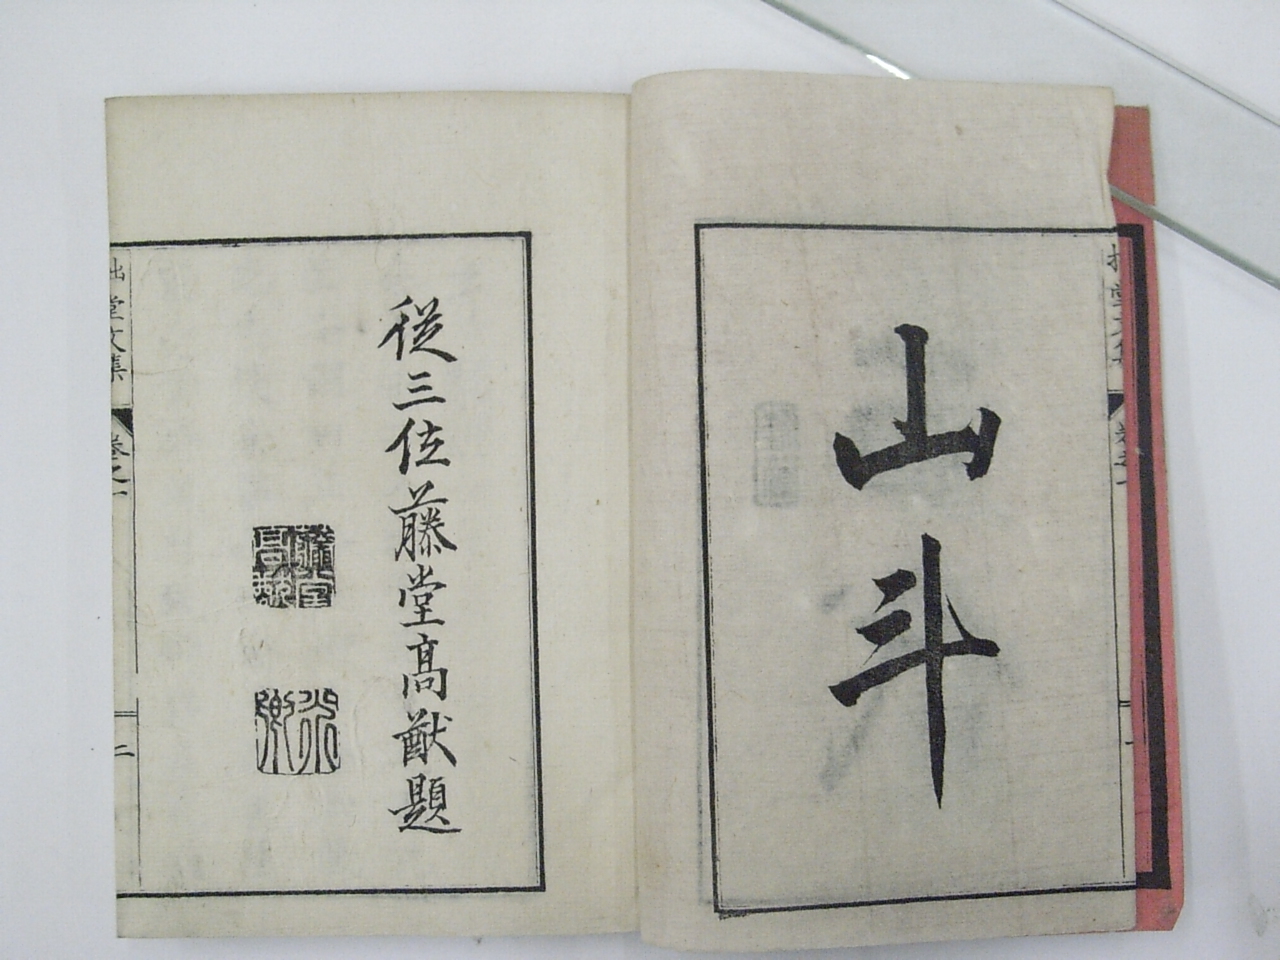 山斗
拙堂文集
卷之一
一
從三位藤堂高猷題
拙堂文集
卷之一
二